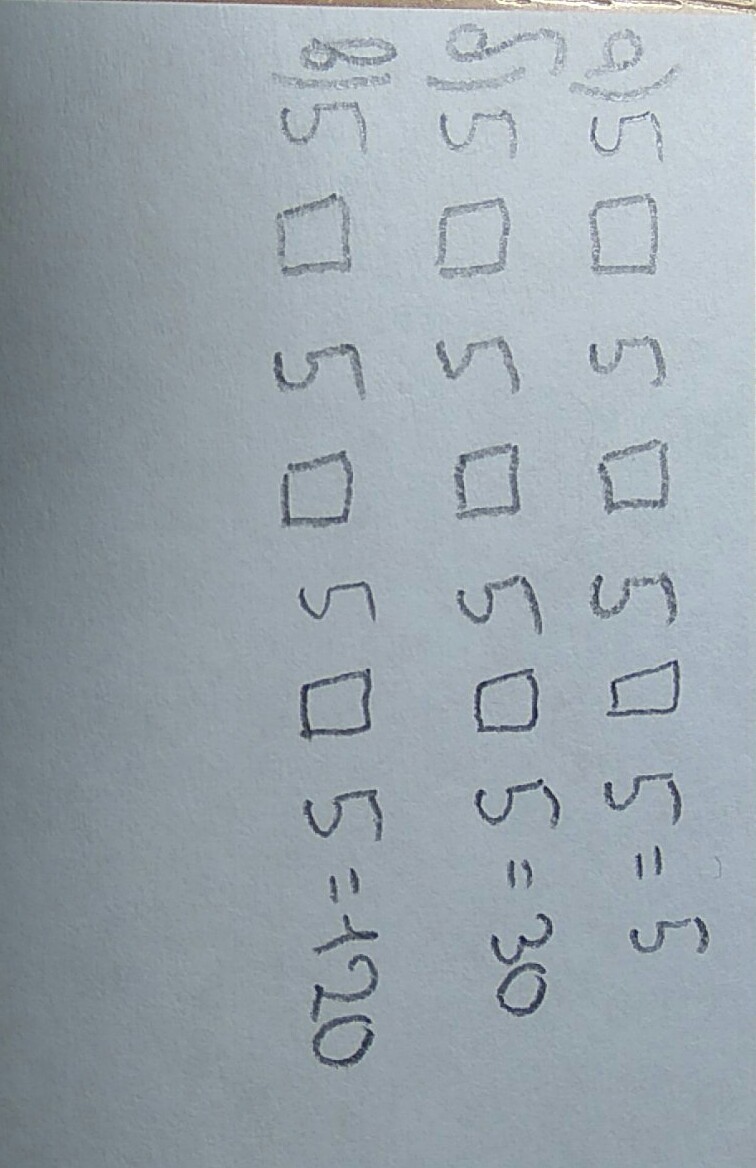 а) 5 □ 5 □ 5 □ 5 = 5
б) 5 □ 5 □ 5 □ 5 = 30
в) 5 □ 5 □ 5 □ 5 = 120